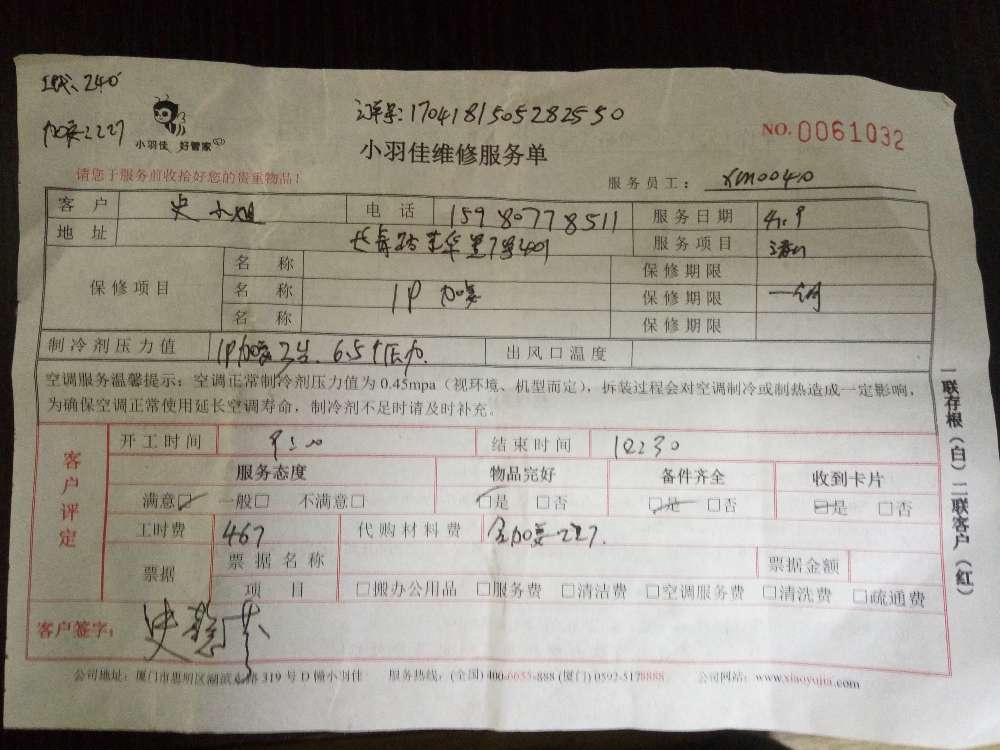 240
订单号:1704181505282550
NO.0061032
227
小羽佳 好管家
小羽佳维修服务单
请您于服务前收拾好您的贵重物品!
服务员工: XM00410
客户 史小姐 电话 15980778511 服务日期
地址 长青路 服务项目
保修项目
名称 保修期限
名称 1P 加 保修期限
名称 保修期限
制冷剂压力值 1P加 6.5个压力 出风口温度
空调服务温馨提示:空调正常制冷剂压力值为0.45mpa(视环境、机型而定),拆装过程会对空调制冷或制热造成一定影响,
为确保空调正常使用延长空调寿命,制冷剂不足时请及时补充。
一联存根(白)二联客户(红)
客户评定
开工时间 9:00 结束时间 10:30
服务态度 物品完好 备件齐全 收到卡片
满意☑ 一般□ 不满意□ ☑是 □否 ☑是 □否 ☑是 □否
工时费 467 代购材料费 227.
票据 票据名称 票据金额
项目 □搬办公用品 □服务费 □清洁费 □空调服务费 □清洗费 □疏通费
客户签字: 史
公司地址:厦门市思明区湖滨南路319号D幢小羽佳 服务热线:(全国)400-0055-888 (厦门)0592-5178888 公司网站:www.xiaoyujia.com